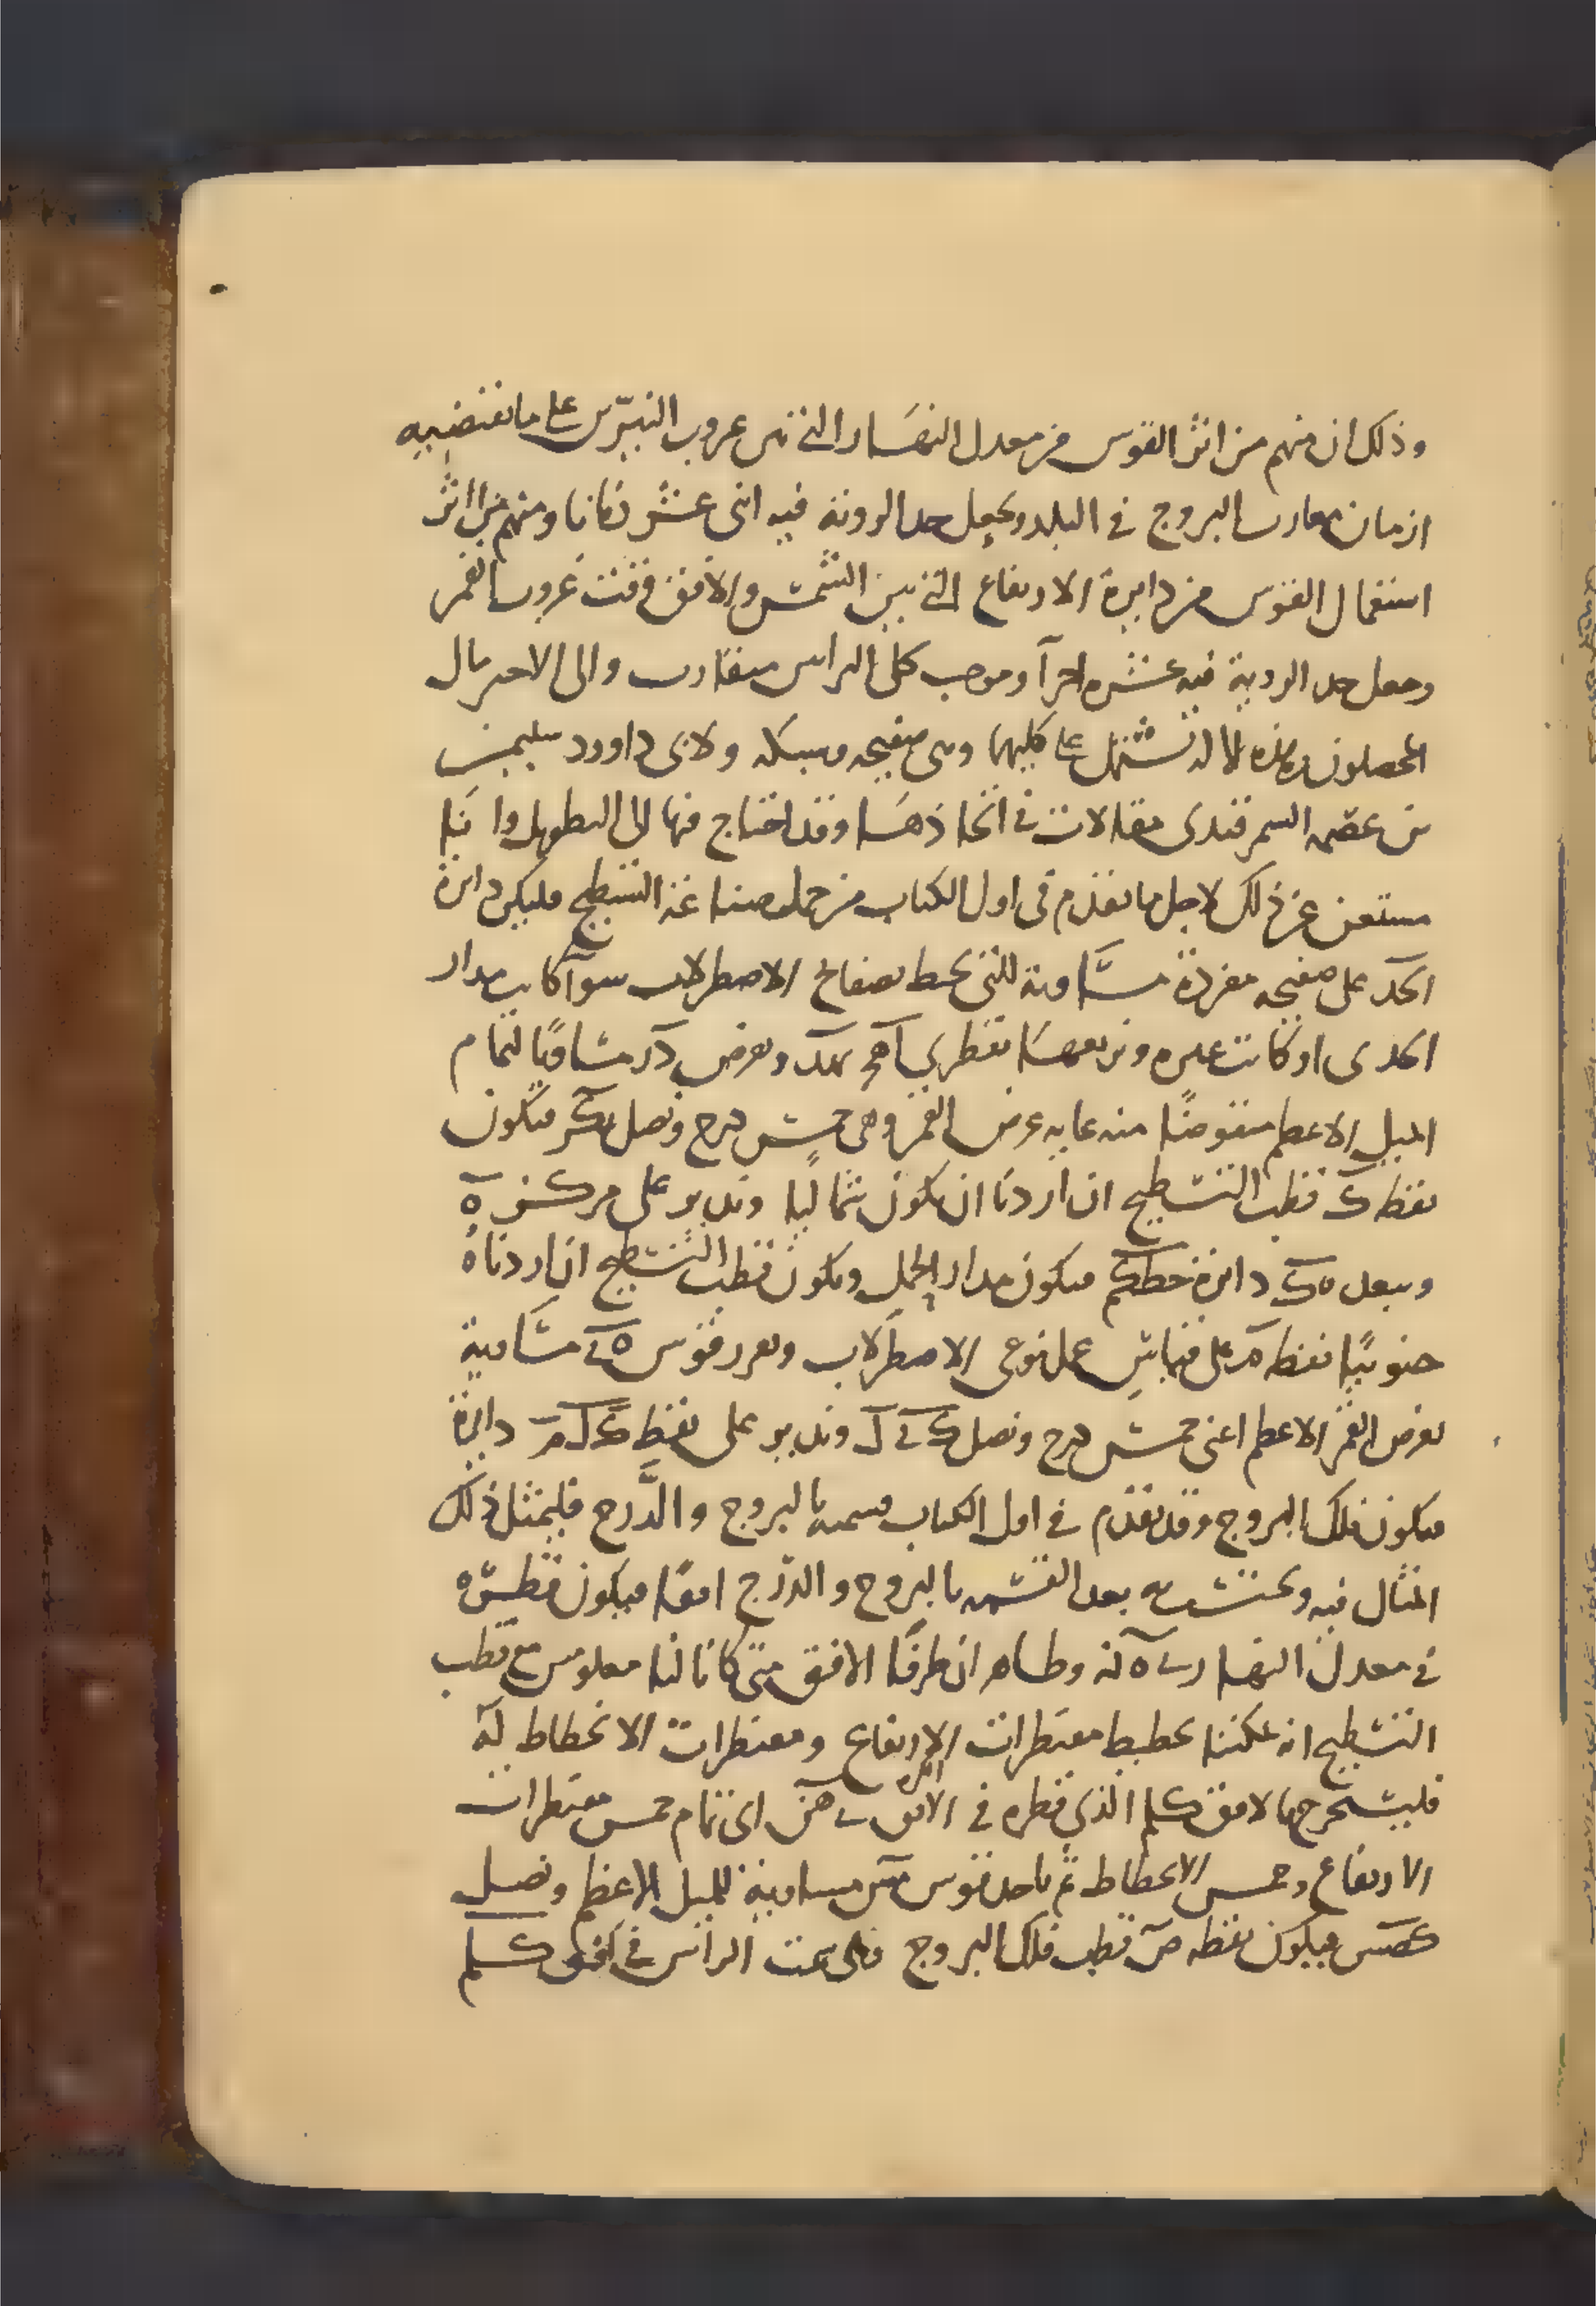 وذلك ان منهم من اثر القوس من معدل النهار التي بين غروب النيرين على ما تقتضيه
ازمان مغارب البروج في البلد ويجعل حد الروية فيه اثنى عشر زمانا ومنهم من اثر
استعمال القوس من دايرة الارتفاع التي بين الشمس والافق وقت غروب القمر
وجعل حد الروية فيه عشرة اجزآ وموجب كلى الراس متقارب والى الاخير مال
المحصلون وهذه الالة تشتمل على كليهما وهى صفيحه وشبكه ولابى داوود سليمن
بن عصمه السمرقندى مقالات في اتخاذها وقد احتاج فيها الى التطويل وانا
مستغن عن ذلك لاجل ما تقدم في اول الكتاب من التسطيح فليكن دايرة
اب‍ج‍د على صفيحه مفردة مساوية للتي تحيط بصفايح الاصطرلاب سوآ كانت مدار
الجدى او كانت غيره ونربعها بقطرى اهج بهد ونفرض در مساويا لتمام
الميل الاعظم منقوصا منه غاية عرض القمر وهى خمس درج ونصل بكر فيكون
نقطه ك قطب التسطيح ان اردنا ان يكون شماليا وندير على مركز ه
وببعد هك دايرة كطم فيكون مدار الحمل ويكون قطب التسطيح ان اردناه
جنوبيا نقطه م على قياس عمل نوعى الاصطرلاب ونفرز قوس مساوية
لعرض القمر الاعظم اعنى خمس درج ونصل وندير على نقط دايرة
فيكون فلك البروج وقد تقدم في اول الكتاب قسمته بالبروج والدرج فليمتثل ذلك
المثال فيه بعد القسمه بالبروج والدرج افقا فيكون قطره
في معدل النهار وظاهر ان طرفا الافق متى كانا لنا معلومين مع قطب
التسطيح انه يمكننا تخطيط مقنطرات الارتفاع ومقنطرات الانحطاط له
فليستخرج لافق كلم الذي قطره في الافق اى تمام خمس مقنطرات
الارتفاع وخمس الانحطاط ثم ناخذ قوس مساوية للميل الاعظم ونصل
كصس فيكون نقطه ص قطب فلك البروج وهى سمت الراس في افق كلم